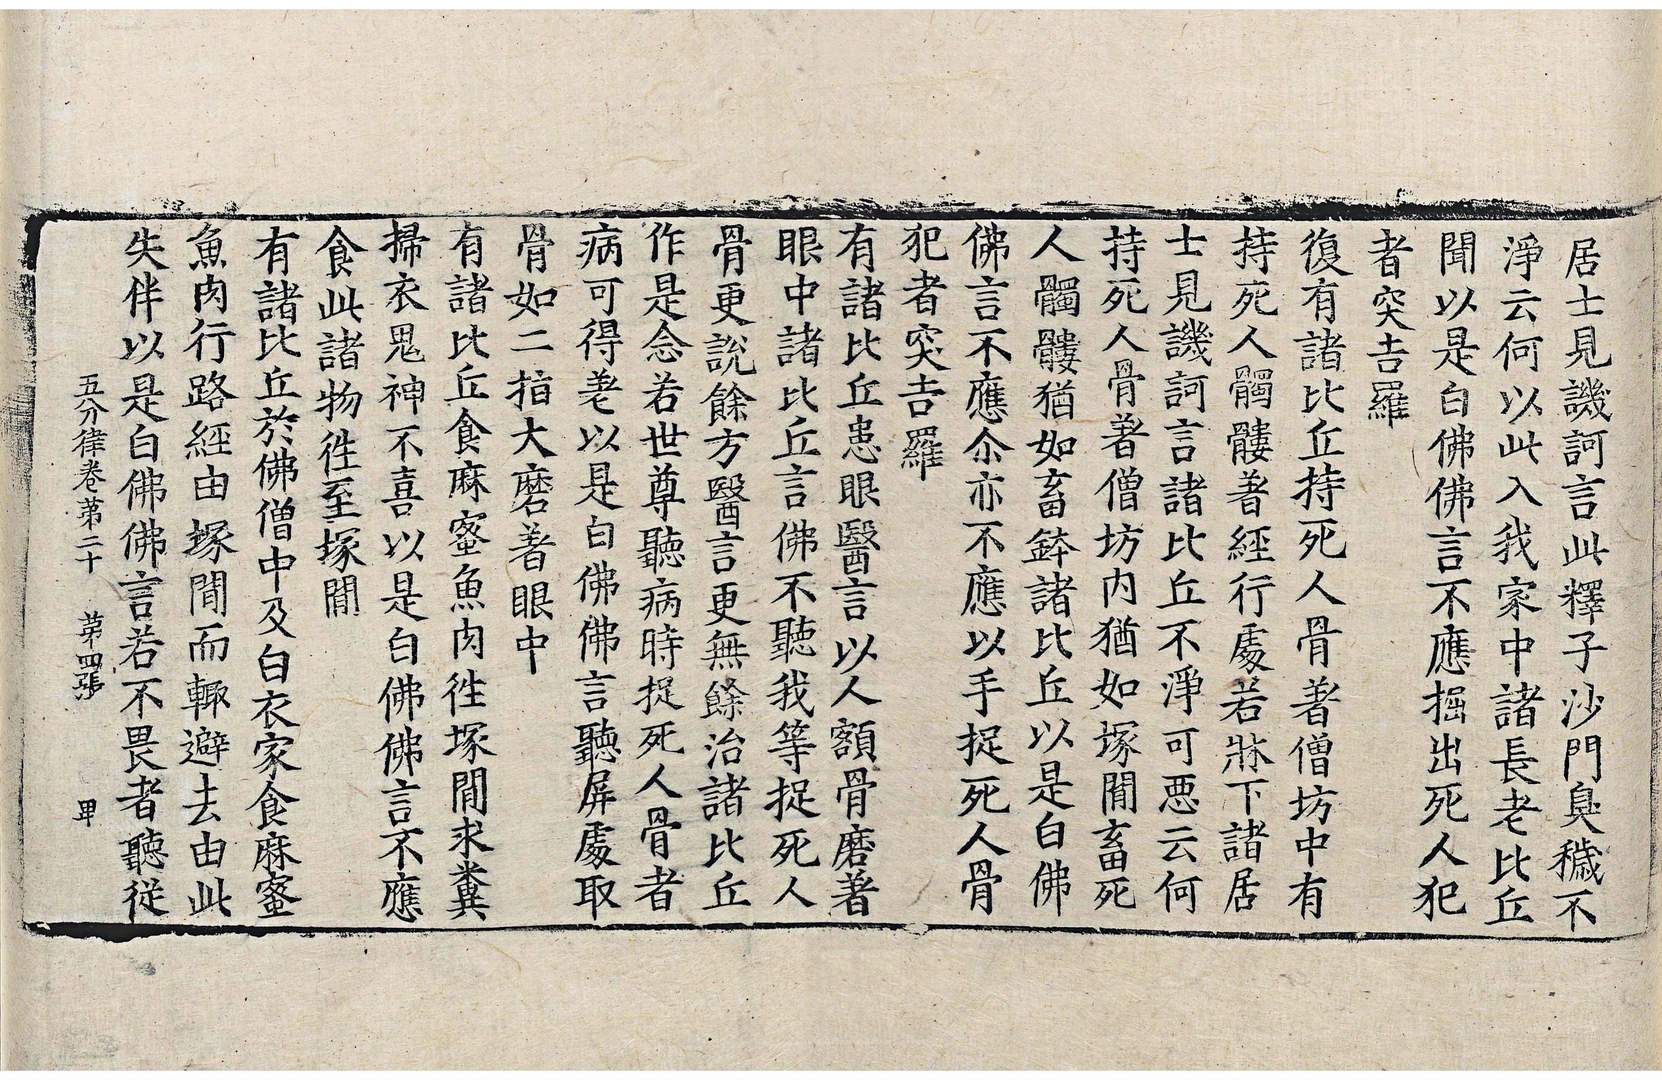 居士見譏訶言此釋子沙門臭穢不
淨云何以此入我家中諸長老比丘
聞以是白佛佛言不應掘出死人犯
者突吉羅
復有諸比丘持死人骨著僧坊中有
持死人髑髏著經行處若牀下諸居
士見譏訶言諸比丘不淨可惡云何
持死人骨著僧坊内猶如塚閒畜死
人髑髏猶如畜鉢諸比丘以是白佛
佛言不應尒亦不應以手捉死人骨
犯者突吉羅
有諸比丘患眼醫言以人額骨磨著
眼中諸比丘言佛不聽我等捉死人
骨更說餘方醫言更無餘治諸比丘
作是念若世尊聽病時捉死人骨者
病可得差以是白佛佛言聽屏處取
骨如二指大磨著眼中
有諸比丘食麻蜜魚肉徃塚閒求糞
掃衣鬼神不喜以是白佛佛言不應
食此諸物徃至塚閒
有諸比丘於佛僧中及白衣家食麻蜜
魚肉行路經由塚閒而輙避去由此
失伴以是白佛佛言若不畏者聽從
五分律卷苐二十 苐四張 甲